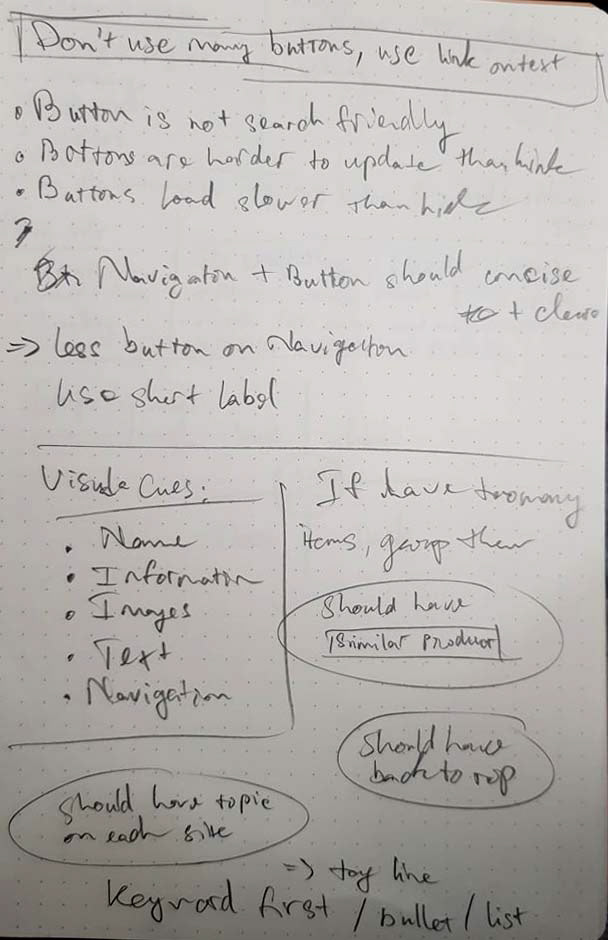 Don't use many buttons, use link on text
• Button is not search friendly
• Bottons are harder to update than link
• Buttons load slower than link
?
Navigation + Button should concise
+ clear
=> less button on Navigation
Use short label
Visual Cues:
• Name
• Information
• Images
• Text
• Navigation
If have too many
items, group them
should have
similar product
should have
back to top
should have topic
on each site
=> tag line
Keyword first / bullet / list